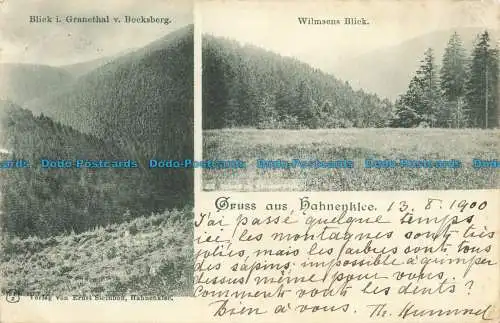 Blick i. Granethal v. Bocksberg.
Wilmsens Blick.
Dodo-Postcards Dodo-Postcards Dodo-Postcards
Gruss aus Hahnenklee.
13. 8. 1900
J'ai passé quelque temps
ici, les montagnes sont très
jolies, mais les arbres sont tous
des sapins, impossible à grimper
dessus même pour vous.
Comment vont les dents?
Bien à vous. Th. Hummel
Verlag von Ernst Steinhoff, Hahnenklee.